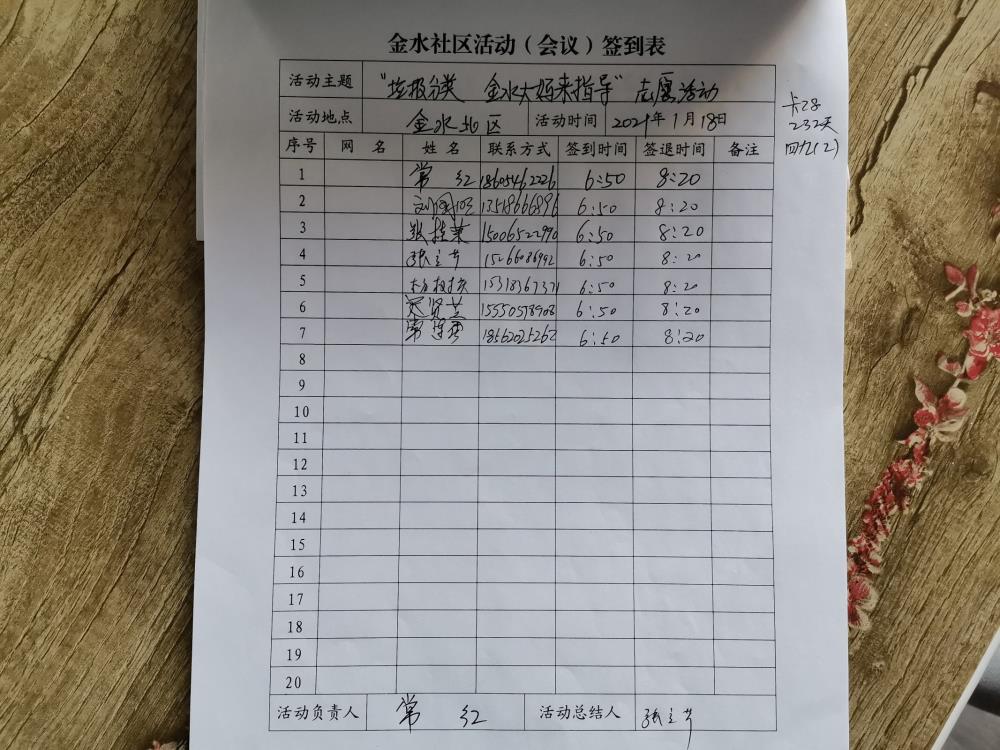 金水社区活动（会议）签到表
活动主题 "垃圾分类 金水大妈来指导" 志愿活动
活动地点 金水北区 活动时间 2021年1月18日
卡28
232天
四九(2)
序号 网 名 姓 名 联系方式 签到时间 签退时间 备注
1 常 红 18605462226 6:50 8:20
2 13518666896 6:50 8:20
3 张桂荣 15006522990 6:50 8:20
4 张立芹 15266086992 6:50 8:20
5 15318367371 6:50 8:20
6 15550578908 6:50 8:20
7 常 18562025262 6:50 8:20
8
9
10
11
12
13
14
15
16
17
18
19
20
活动负责人 常 红 活动总结人 张立芹